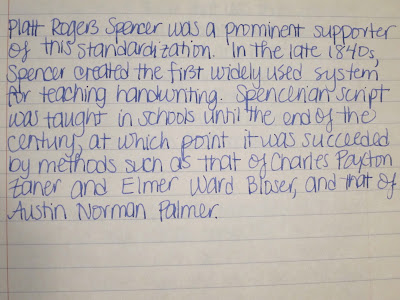 Platt Rogers Spencer was a prominent supporter
of this standardization. In the late 1840s,
Spencer created the first widely used system
for teaching handwriting. Spencerian script
was taught in schools until the end of the
century, at which point it was succeeded
by methods such as that of Charles Paxton
Zaner and Elmer Ward Bloser, and that of
Austin Norman Palmer.